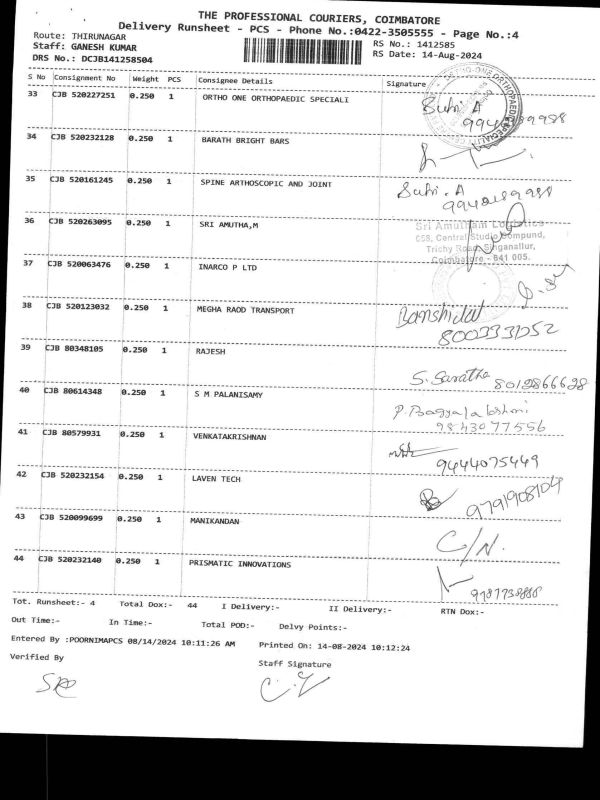 THE PROFESSIONAL COURIERS, COIMBATORE
Delivery Runsheet - PCS - Phone No.:0422-3505555 - Page No.:4
Route: THIRUNAGAR
Staff: GANESH KUMAR
DRS No.: DCJB141258504
RS No.: 1412585
RS Date: 14-Aug-2024
S No Consignment No Weight PCS Consignee Details Signature
33 CJB 520227251 0.250 1 ORTHO ONE ORTHOPAEDIC SPECIALI
34 CJB 520232128 0.250 1 BARATH BRIGHT BARS
35 CJB 520161245 0.250 1 SPINE ARTHOSCOPIC AND JOINT
36 CJB 520263095 0.250 1 SRI AMUTHA,M
Sri Amutham Logistics
C58, Central Studio Compund,
Trichy Road, Singanallur,
Coimbatore - 641 005.
37 CJB 520063476 0.250 1 INARCO P LTD
38 CJB 520123032 0.250 1 MEGHA RAOD TRANSPORT
39 CJB 80348105 0.250 1 RAJESH
S. Saratha 8012866628
40 CJB 80614348 0.250 1 S M PALANISAMY
P. Bagyalakshmi
9843077556
41 CJB 80579931 0.250 1 VENKATAKRISHNAN
9444075449
42 CJB 520232154 0.250 1 LAVEN TECH
9791908104
43 CJB 520099699 0.250 1 MANIKANDAN
C/N.
44 CJB 520232140 0.250 1 PRISMATIC INNOVATIONS
Tot. Runsheet:- 4 Total Dox:- 44 I Delivery:- II Delivery:- RTN Dox:-
Out Time:- In Time:- Total POD:- Delvy Points:-
Entered By :POORNIMAPCS 08/14/2024 10:11:26 AM Printed On: 14-08-2024 10:12:24
Verified By Staff Signature